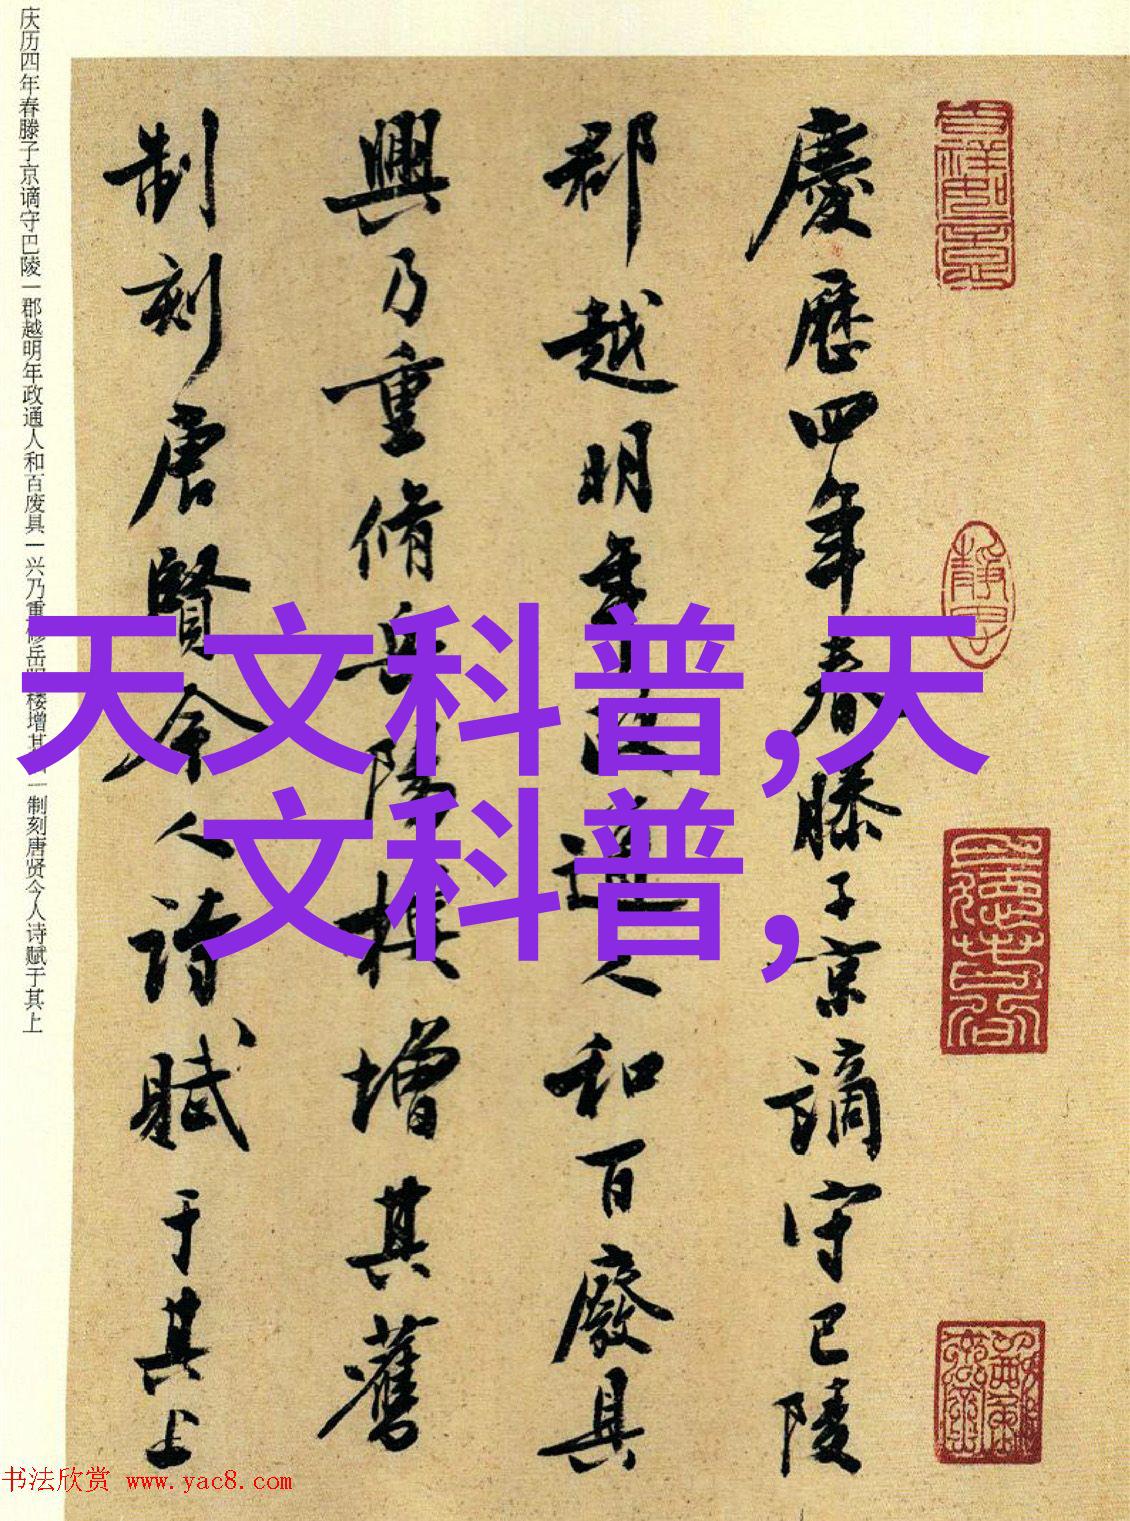 慶歷四年春滕子京谪守巴陵
郡越明年政通人和百廢具
興乃重脩岳陽樓增其舊
制刻唐賢今人詩賦于其上
庆历四年春滕子京谪守巴陵一郡越明年政通人和百废具一兴乃重修岳阳楼增其旧一制刻唐贤今人诗赋于其上
天文科普,天
文科普,
书法欣赏 www.yac8.com